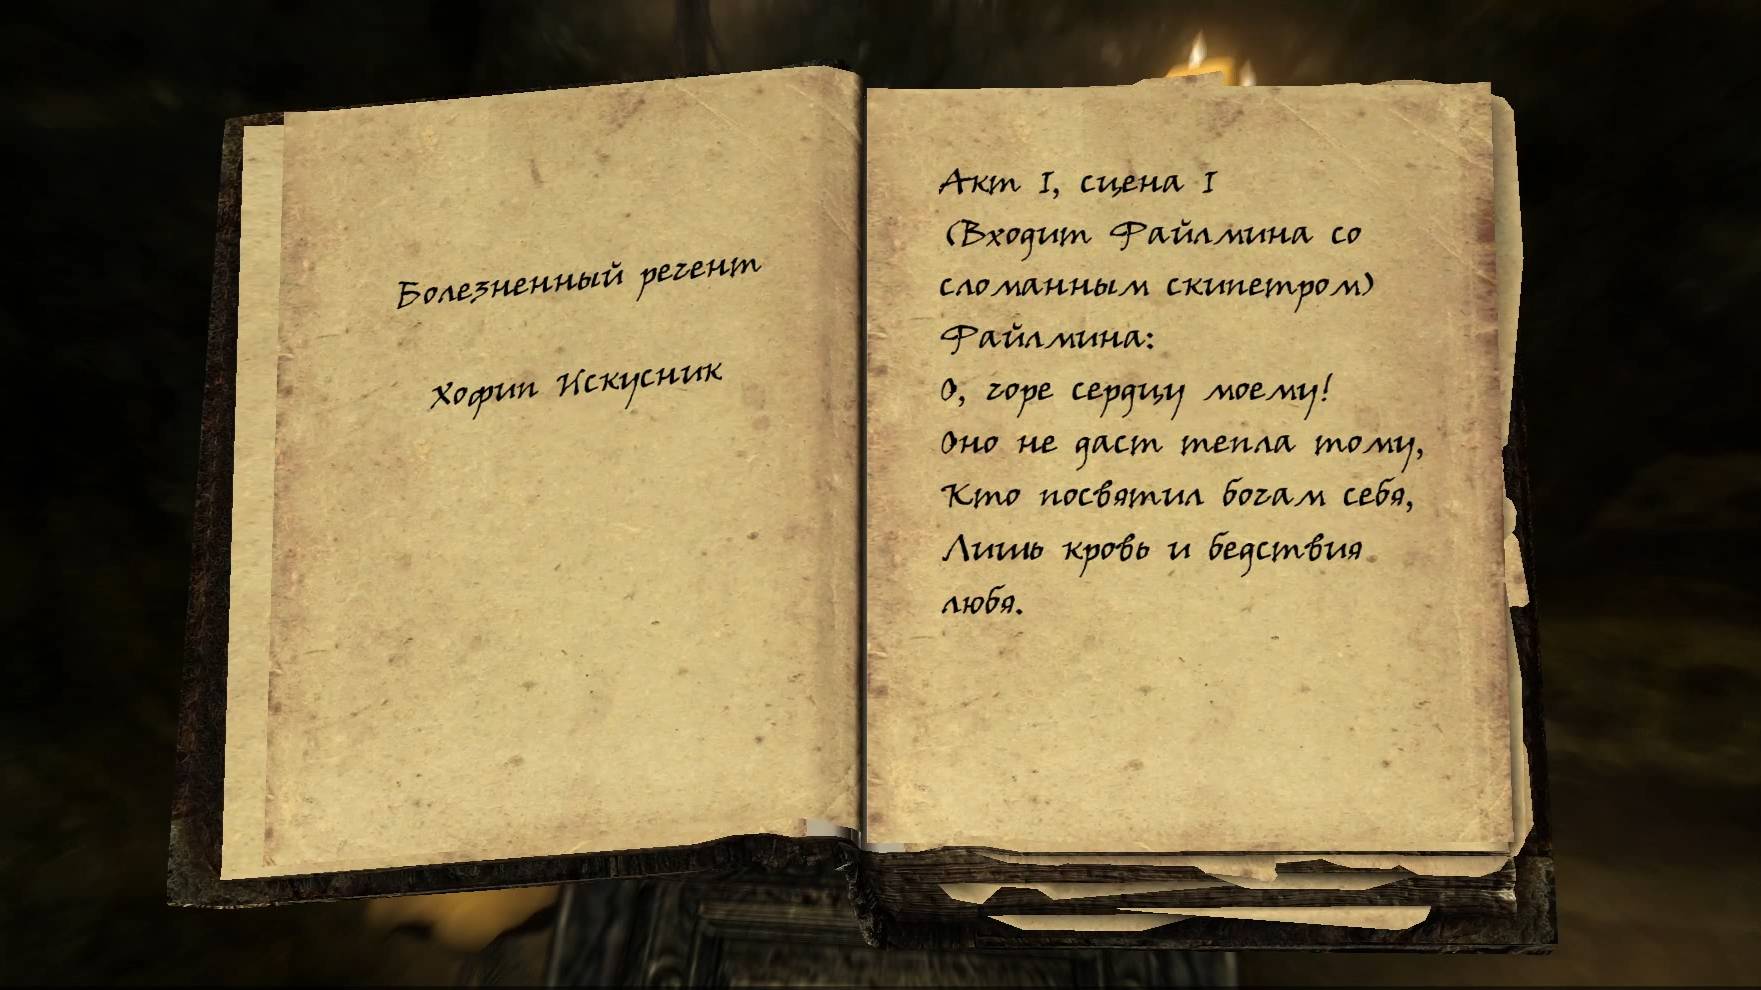 Болезненный регент
Хофип Искусник
Акт I, сцена I
(Входит Файлмина со
сломанным скипетром)
Файлмина:
О, горе сердцу моему!
Оно не даст тепла тому,
Кто посвятил богам себя,
Лишь кровь и бедствия
любя.